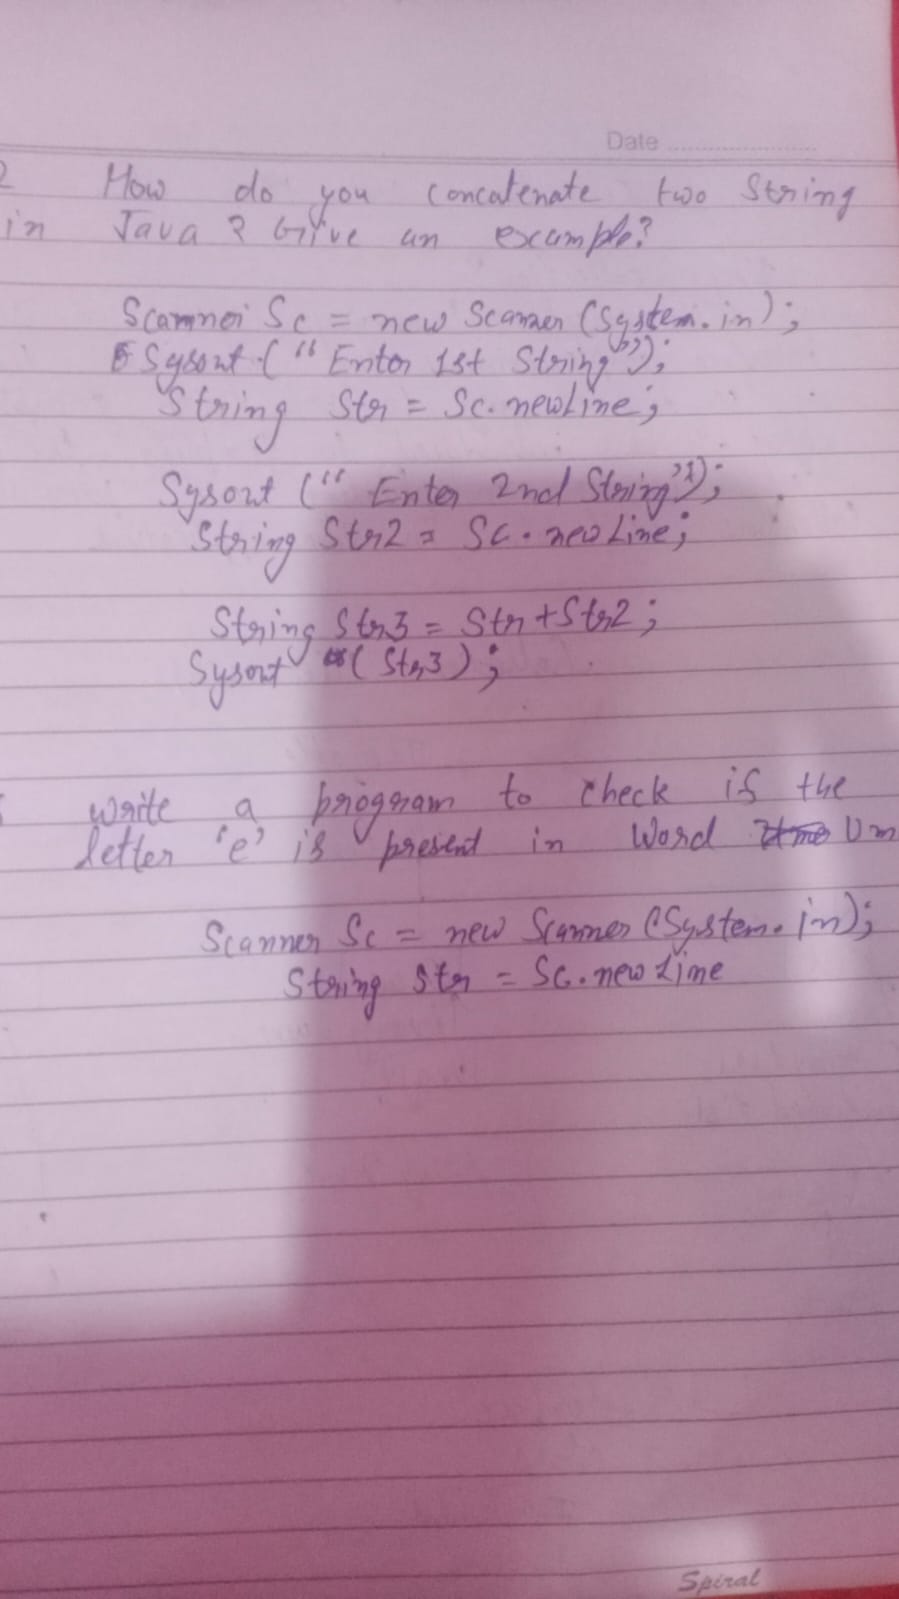 Date
2 How do you Concatenate two String
in Java ? Give an example?
Scanner Sc = new Scanner (System.in);
Sysout (" Enter 1st String");
String Str = Sc. newLine;
Sysout (" Enter 2nd String");
String Str2 = Sc. newLine;
String Str3 = Str + Str2;
Sysout (Str3);
write a program to check if the
letter 'e' is present in Word Um
Scanner Sc = new Scanner (System.in);
String Str = Sc. newLine
Spiral